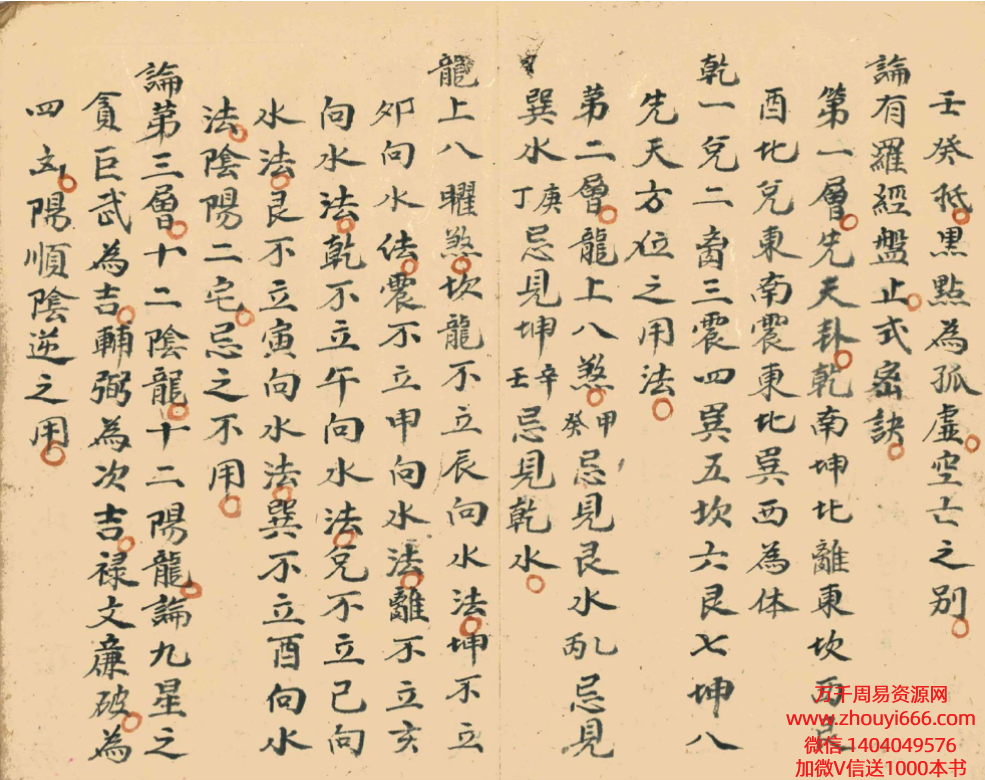 壬癸抵黑點為孤虛空亡之别
論有羅經盤止式宻訣
第一層先天卦乾南坤北離東坎西艮
酉北兌東南震東北巽西為体
乾一兌二離三震四巽五坎六艮七坤八
先天方位之用法
第二層龍上八煞甲癸忌見艮水丙乙忌見
巽水庚丁忌見坤辛壬忌見乾水
龍上八曜煞坎龍不立辰向水法坤不立
卯向水法震不立申向水法離不立亥
向水法乾不立午向水法兌不立巳向
水法艮不立寅向水法巽不立酉向水
法陰陽二宅忌之不用
論第三層十二陰龍十二陽龍論九星之
貪巨武為吉輔弼為次吉禄文廉破為
四凶陽順陰逆之用
五千周易资源网
www.zhouyi666.com
微信 1404049576
加微V信送1000本书